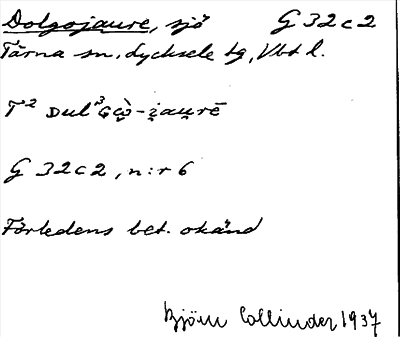 Dolgojaure, sjö G 32 c 2
Tärna sn, Lycksele lg, Vbt l.
T² DUL³Gὼ-i̯au̯rē
G 32c2, n:r 6
Förledens bet. okänd
Björn Collinder 1937